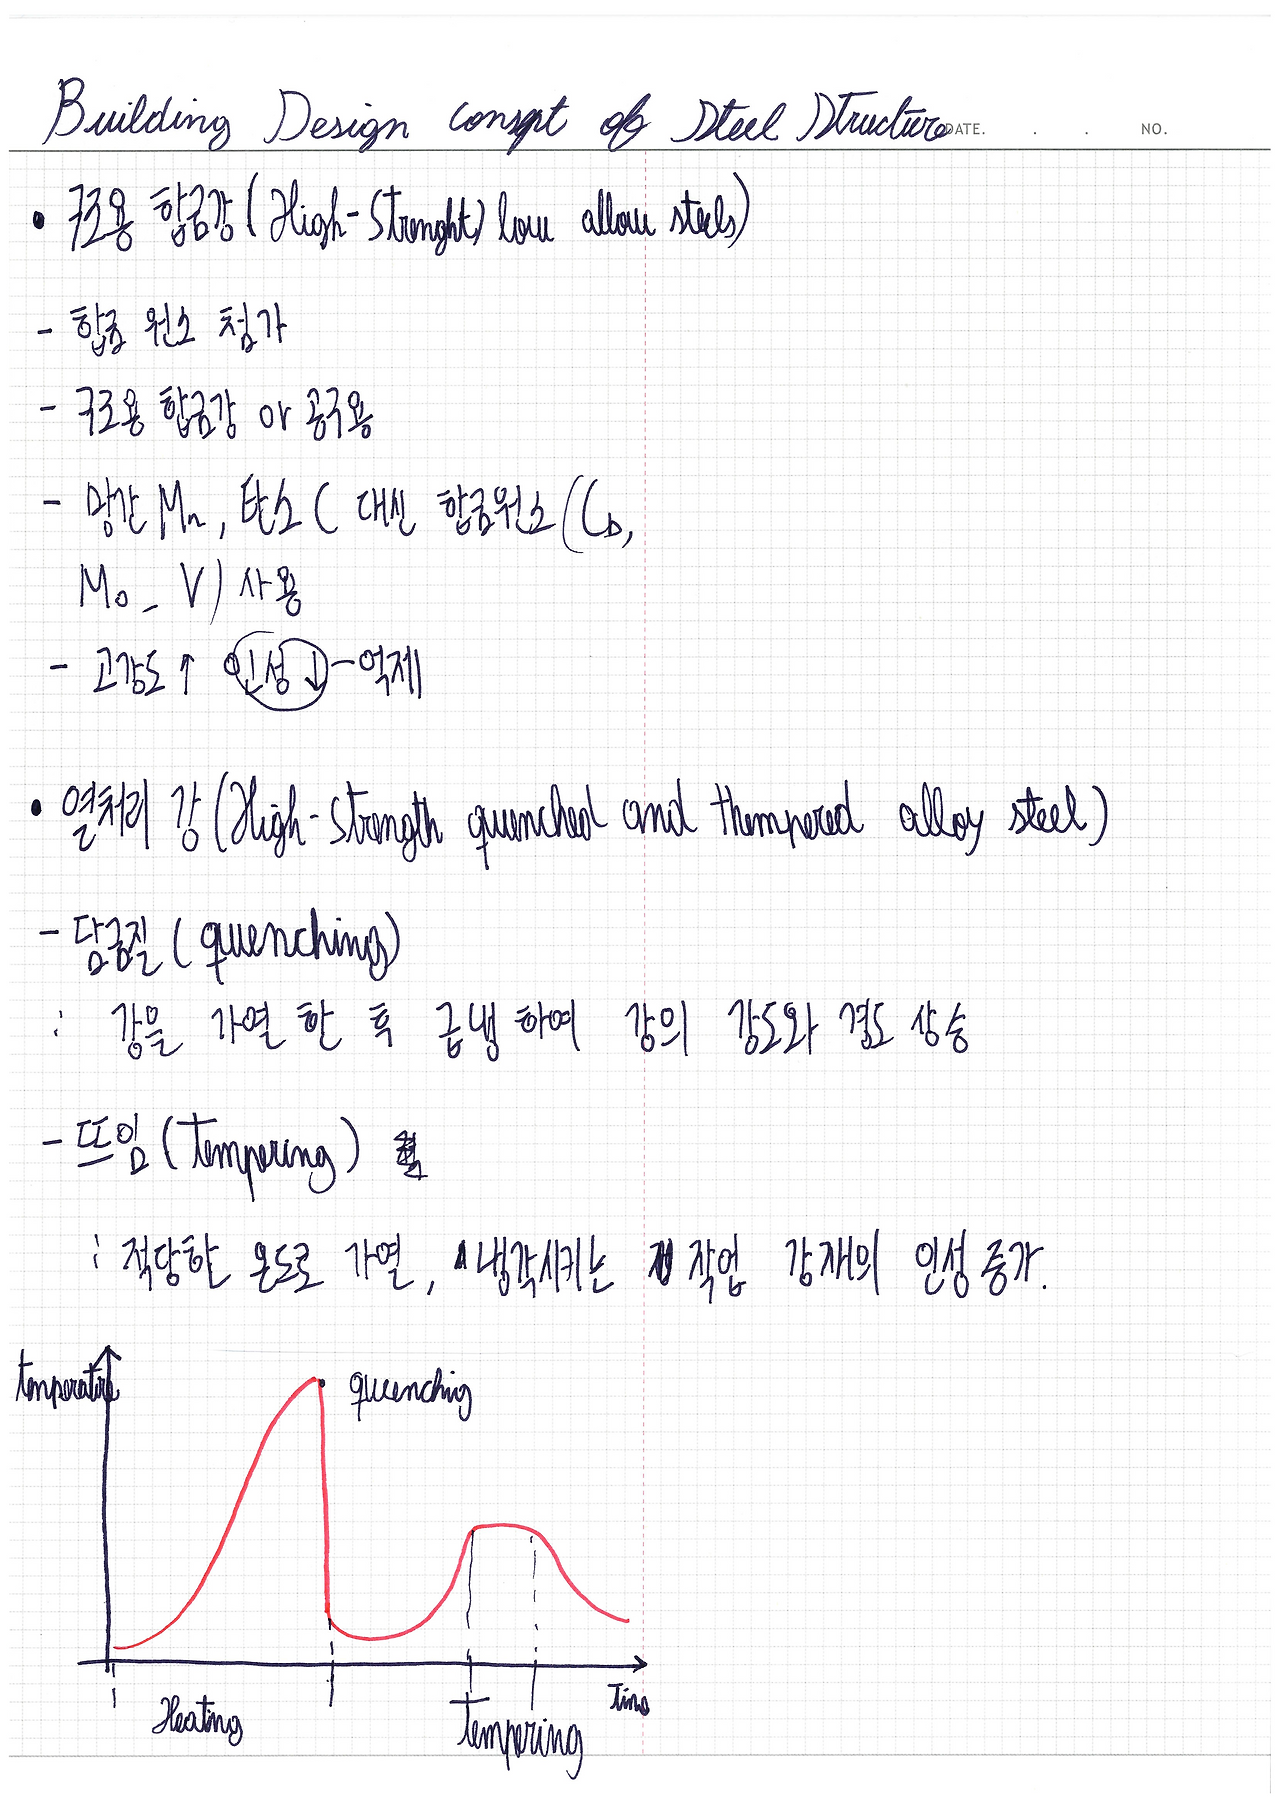 Building Design consept of Steel Structure
DATE. . . NO.
• 구조용 합금강 (High-Strenght) low allow steels)
- 합금 원소 첨가
- 구조용 합금강 or 공구용
- 망간 Mn, 탄소 C 대신 합금원소 (Cb,
Mo_ V) 사용
- 고강도 ↑ 인성 ↓ - 억제
• 열처리 강 (High-Strength quenched and thempered alloy steel)
- 담금질 (quenching)
: 강을 가열 한 후 급냉 하여 강의 강도와 경도 상승
- 뜨임 (Tempering)
: 적당한 온도로 가열, 냉각시키는 작업 강재의 인성 증가.
temperature
quenchig
Heating
Tempering
Time